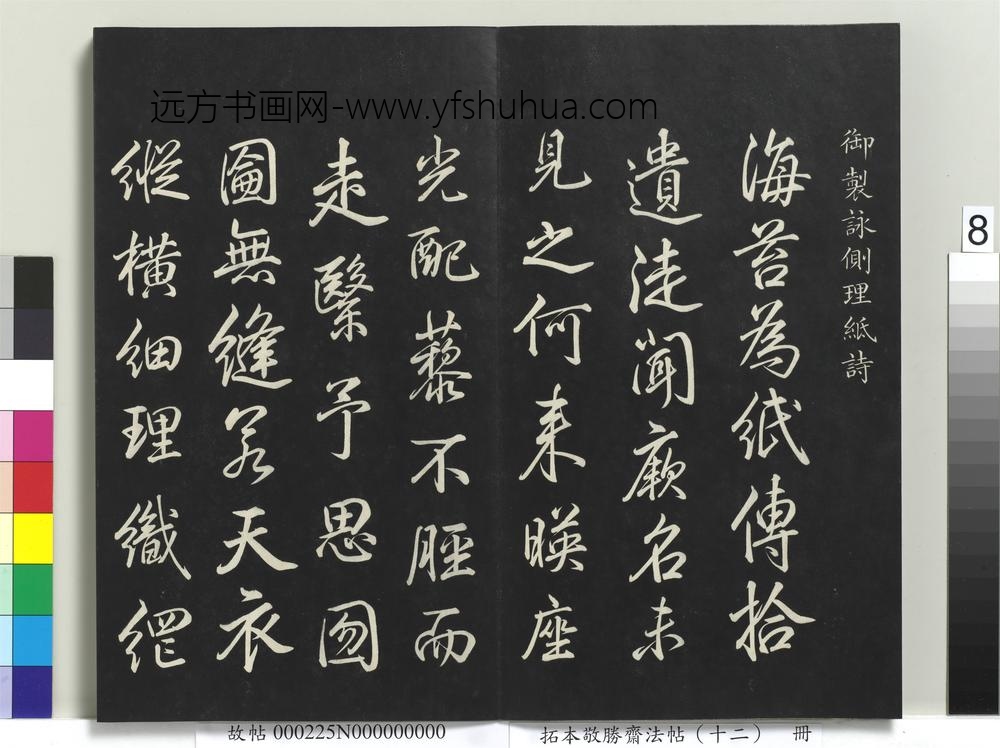 御製詠側理紙詩
海苔為紙傳拾
遺徒聞厥名未
見之何来暎座
光配藜不脛而
走緊予思囫
圇無縫若天衣
縱橫細理織網
远方书画网-www.yfshuhua.com
8
故帖 000225N000000000
拓本敬勝齋法帖（十二） 冊